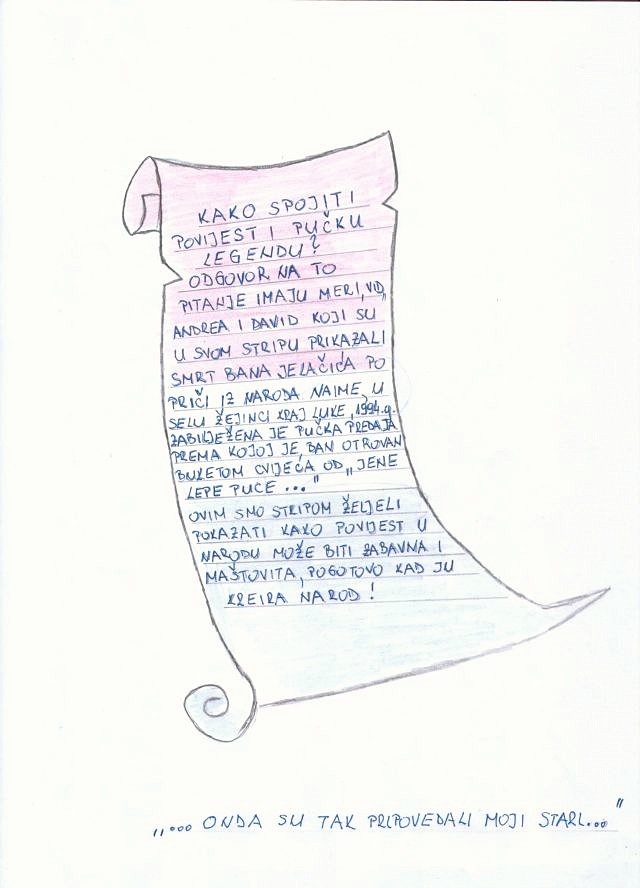 KAKO SPOJITI
POVIJEST I PUČKU
LEGENDU?
ODGOVOR NA TO
PITANJE IMAJU MERI, VID,
ANDREA I DAVID KOJI SU
U SVOM STRIPU PRIKAZALI
SMRT BANA JELAČIĆA PO
PRIČI IZ NARODA. NAIME, U
SELU ŽEJINCI KRAJ LUKE, 1994.g.
ZABILJEŽENA JE PUČKA PREDAJA
PREMA KOJOJ JE, BAN OTROVAN
BUKETOM CVIJEĆA OD „JENE
LEPE PUCE..."
OVIM SMO STRIPOM ŽELJELI
POKAZATI KAKO POVIJEST U
NARODU MOŽE BITI ZABAVNA I
MAŠTOVITA, POGOTOVO KAD JU
KREIRA NAROD!
„... ONDA SU TAK PRIPOVEDALI MOJI STARI..."